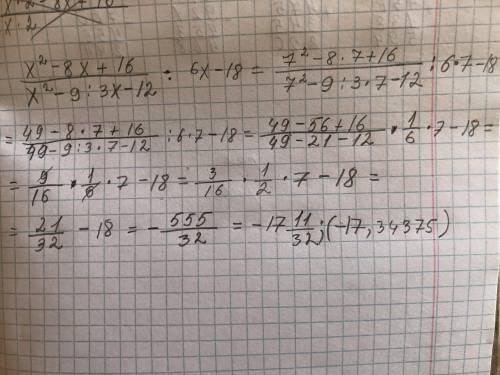 x² - 8x + 10
x: 2
(x² - 8x + 16)/(x² - 9 : 3x - 12) : 6x - 18 = (7² - 8 · 7 + 16)/(7² - 9 : 3 · 7 - 12) : 6 · 7 - 18
= (49 - 8 · 7 + 16)/(49 - 9 : 3 · 7 - 12) : 6 · 7 - 18 = (49 - 56 + 16)/(49 - 21 - 12) · 1/6 · 7 - 18 =
= 9/16 · 1/6 · 7 - 18 = 3/16 · 1/2 · 7 - 18 =
= 21/32 - 18 = - 555/32 = -17 11/32; (-17,34375)